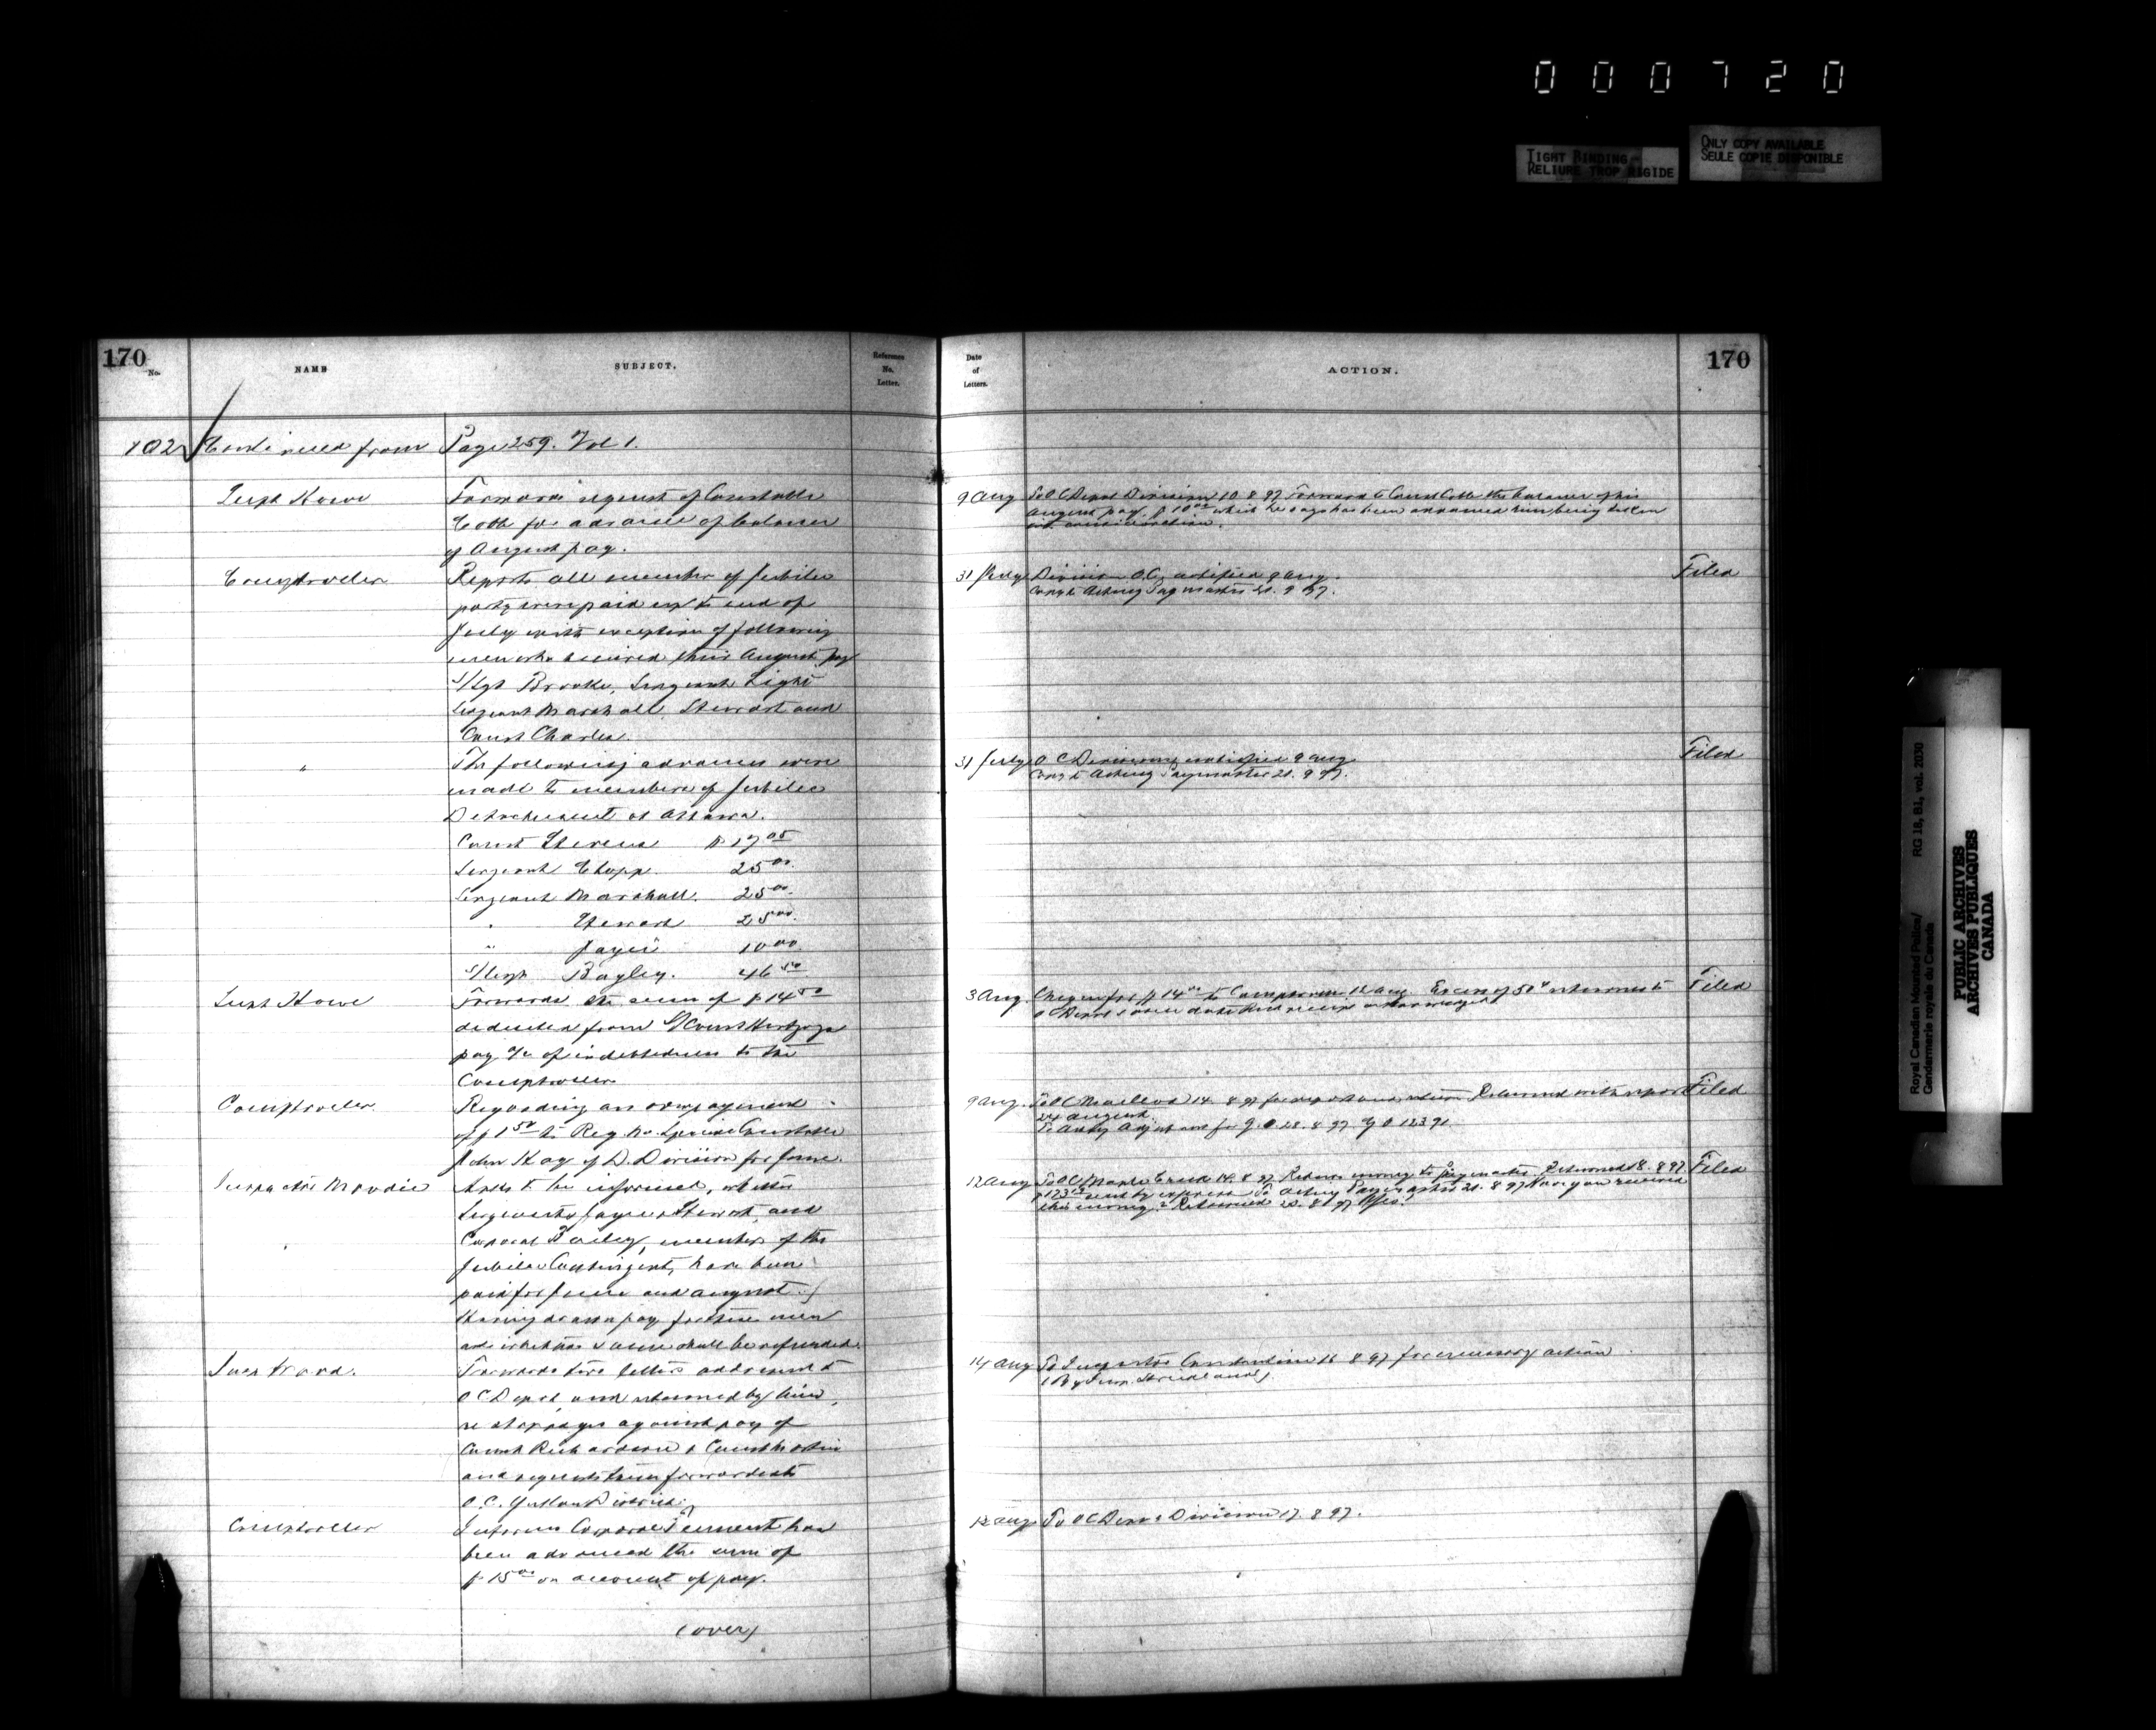 000720
TIGHT BINDING
RELIURE TROP RIGIDE
ONLY COPY AVAILABLE
SEULE COPIE DISPONIBLE
170
No.
NAME
SUBJECT.
Reference
No.
Letter.
102 Continued from Page 259. Vol 1.
Supt Howe
Forwards request of Constable
Cobb for advance of balance
of August pay.
Comptroller
Reports all members of Jubilee
party were paid up to end of
July with exception of following
men who received their August pay
S/Sgt Brooke, Sergeant Light
Sergeant Marshall, Stewart and
Const Charles.
"
The following advances were
made to members of Jubilee
Detachment at Ottawa.
Const Stevens
Sergeant Clopp 25 00
Sergeant Marshall. 25 00
" Stewart 25 00
" Jayes 10 00
Bagley. 46 50
Supt Howe
Forwards the sum of $14 50
deducted from
pay a/c of indebtedness to the
Comptroller
Comptroller
Regarding an overpayment
of $1 50 to Reg. No. Special Constable
John Hoag of D. Division for June.
Inspector Moodie
Asks to be informed, whether
Sergeants Jayes & Stewart, and
Corporal Bailey, members of the
Jubilee Contingent, have been
paid for June and August.
Having drawn pay for these men
and whether same shall be refunded.
Insp Wood.
Forwards two letters addressed to
O C Depot, and returned by him,
re stoppages against pay of
Const Richardson & Const Martin
and requests them forwarded to
O.C. Yukon District.
Comptroller
Informs Corporal has
been advanced the sum of
$15 00 on account of pay.
(over)
Date
of
Letters.
ACTION.
170
9 Aug To O C Depot Division 10. 8 97 Forward to Const Cobb the balance of his
August pay, $10 00 which he says has been advanced him being taken
into consideration.
31 July Division O.C. notified 9 Aug. Filed
Copy to Acting Paymaster 21. 9 97.
31 July O C Divisions notified 9 Aug Filed
Copy to Acting Paymaster 21. 9 97.
3 Aug. Cheque for $14 00 to Comptroller 12 Aug. Excess of 50¢ returned to Filed
O C Depot same date
9 Aug. To O C Macleod 14. 8 97 for report and return Returned with report Filed
24 August.
for G.O 28. 8 97 G O 12391
12 Aug To O C Maple Creek 14. 8 97 Return money to Paymaster. Returned 18. 8 97 Filed
sent by express To Acting Paymaster 21. 8 97 Have you received
this money? Returned 8 97 Yes.
14 Aug To Inspector Constantine 16 8 97 for necessary action
(By Insp. Strickland)
To O C Depot Division 17. 8 97.
Royal Canadian Mounted Police/ RG 18, B1, vol. 2030
Gendarmerie royale du Canada
PUBLIC ARCHIVES
ARCHIVES PUBLIQUES
CANADA